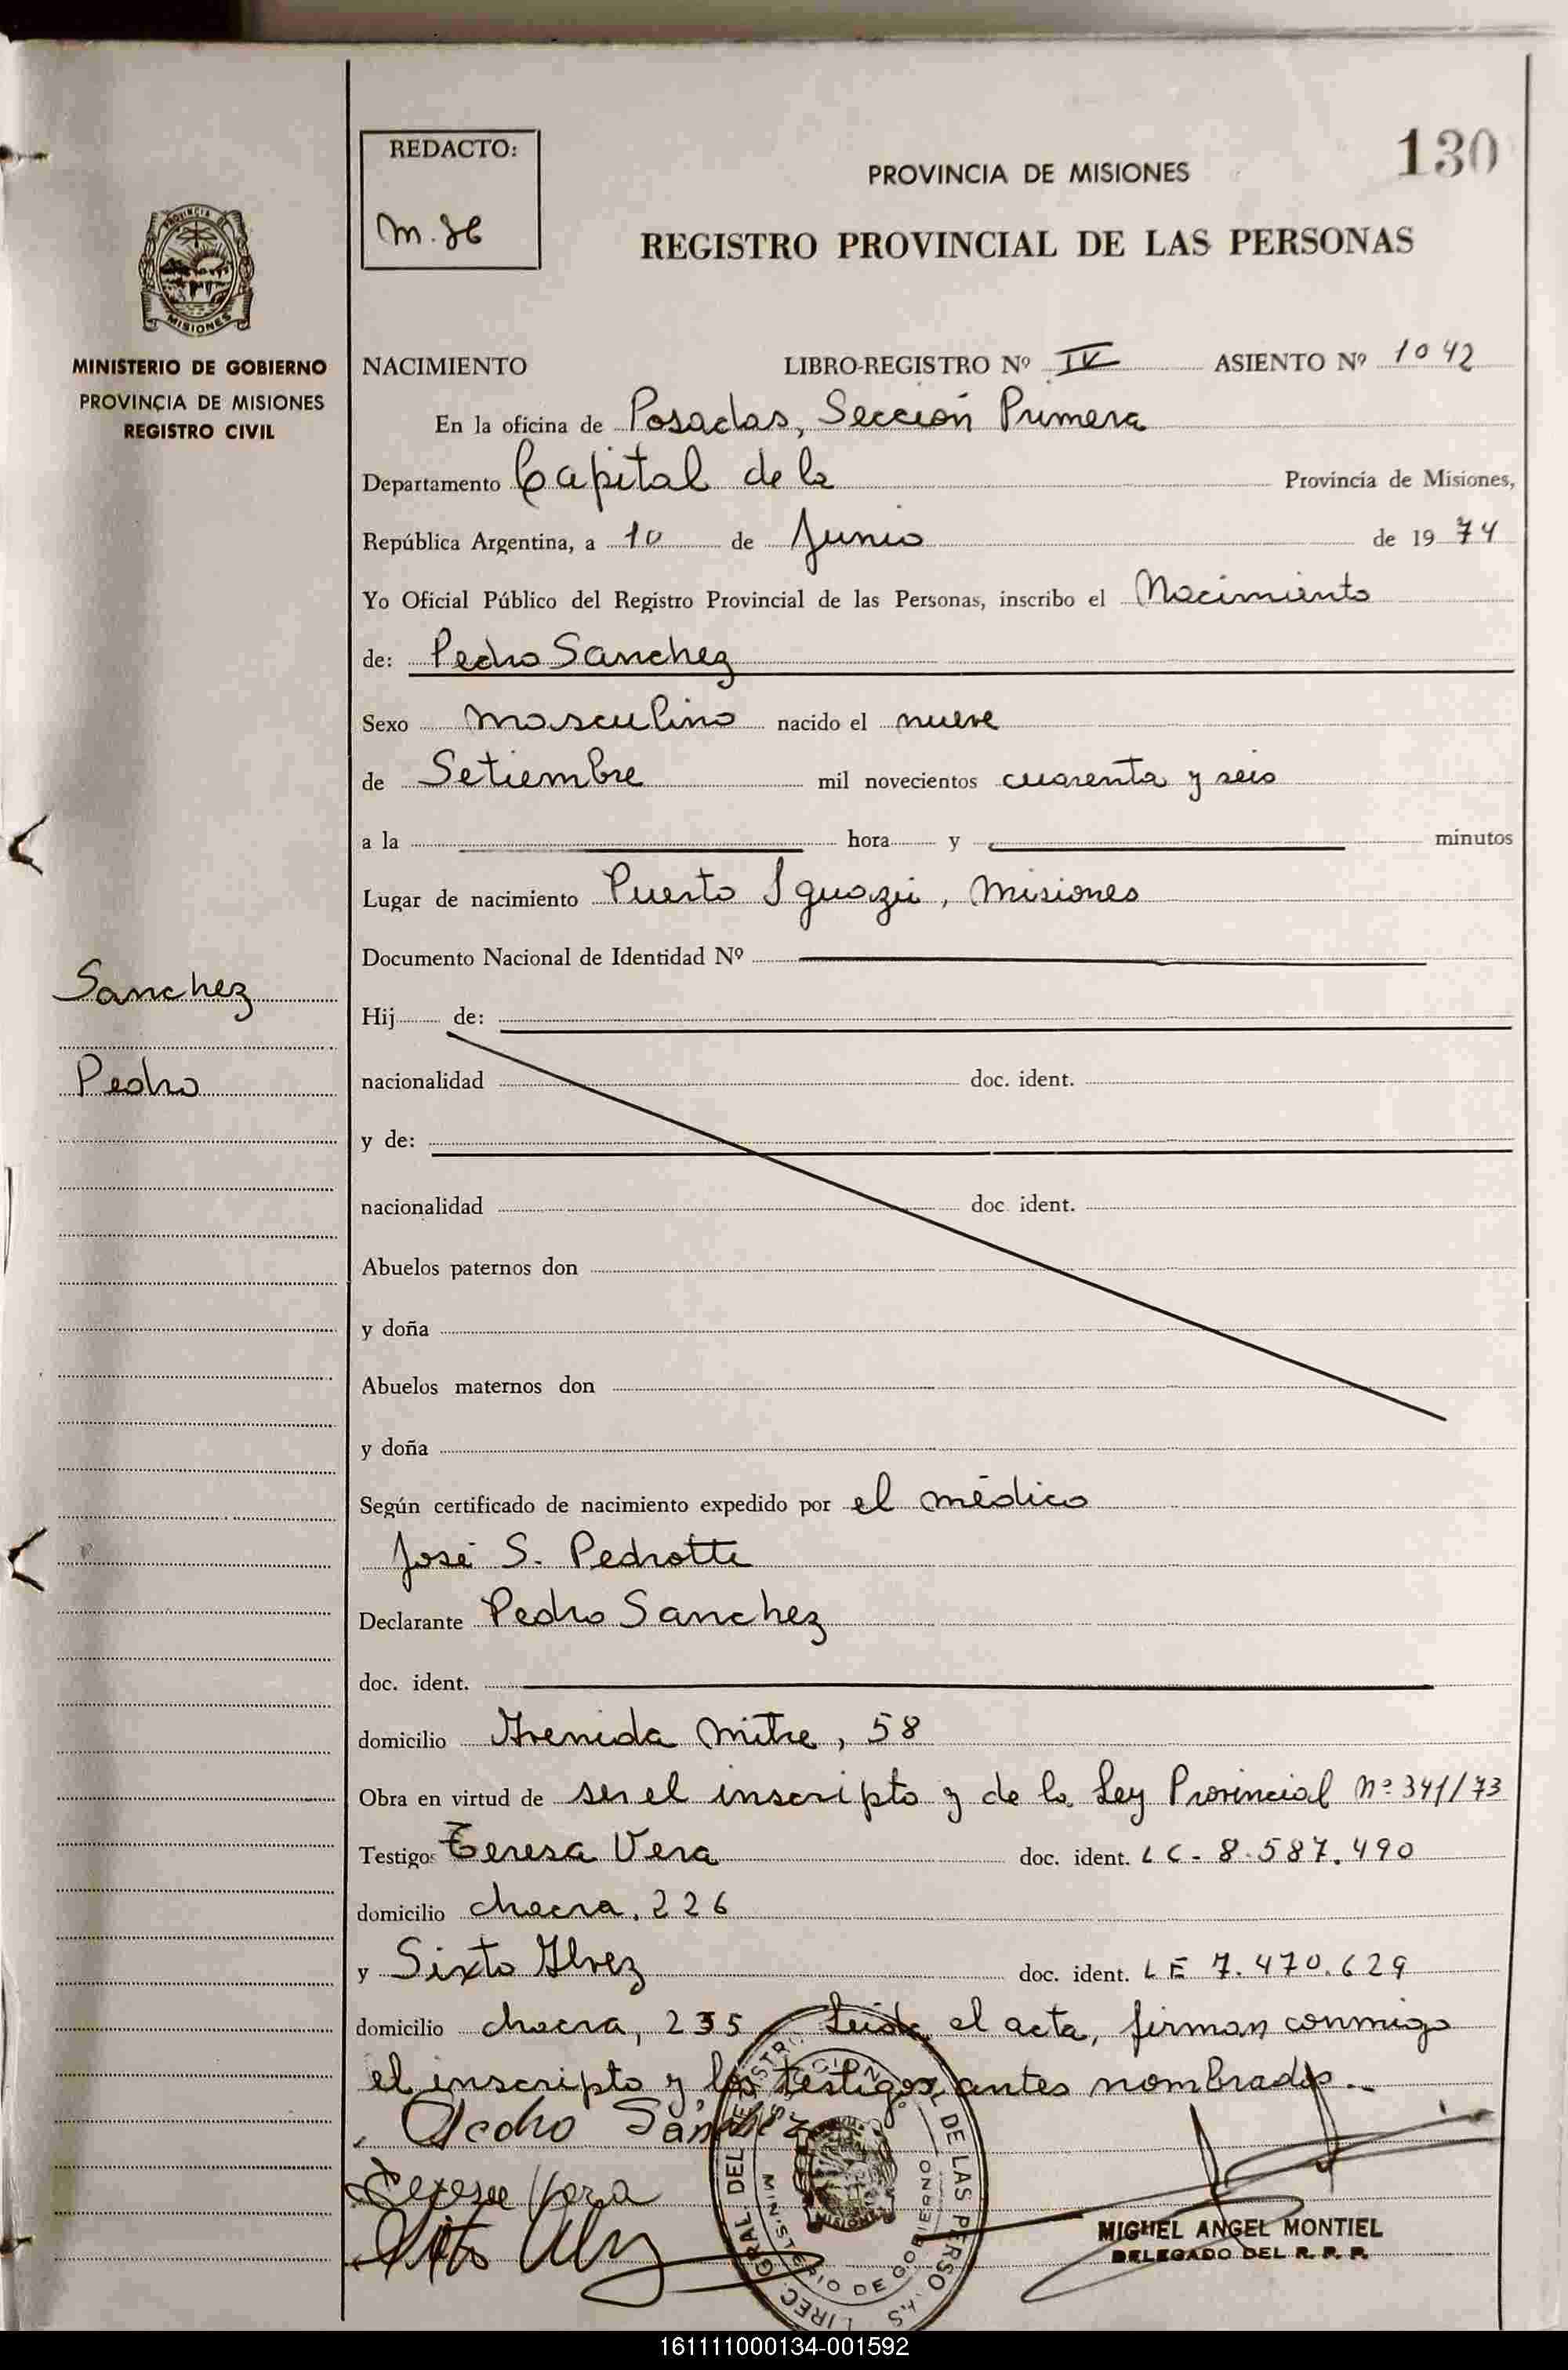 130
REDACTO:
PROVINCIA DE MISIONES
REGISTRO PROVINCIAL DE LAS PERSONAS
PROVINCIA DE
MISIONES
MINISTERIO DE GOBIERNO
PROVINCIA DE MISIONES
REGISTRO CIVIL
NACIMIENTO LIBRO-REGISTRO Nº IV ASIENTO Nº 1042
En la oficina de Posadas, Sección Primera
Departamento Capital de la Provincia de Misiones,
República Argentina, a 10 de Junio de 1974
Yo Oficial Público del Registro Provincial de las Personas, inscribo el Nacimiento
de: Pedro Sanchez
Sexo masculino nacido el nueve
de Setiembre mil novecientos cuarenta y seis
a la hora y minutos
Lugar de nacimiento Puerto Iguazú, Misiones
Documento Nacional de Identidad Nº
Sanchez
Pedro
Hij de:
nacionalidad doc. ident.
y de:
nacionalidad doc. ident.
Abuelos paternos don
y doña
Abuelos maternos don
y doña
Según certificado de nacimiento expedido por el médico
José S. Pedrotti
Declarante Pedro Sanchez
doc. ident.
domicilio Avenida Mitre, 58
Obra en virtud de ser el inscripto y de la Ley Provincial Nº 341/73
Testigos Teresa Vera doc. ident. LC - 8.587.490
domicilio chacra. 226
y Sixto Alvez doc. ident. LE 7.470.629
domicilio chacra, 235 Leida el acta, firman conmigo
el inscripto y los testigos antes nombrados.-
Pedro Sánchez
Teresa Vera
Sixto Alvez
MINISTERIO DE GOBIERNO
MISIONES
MIGUEL ANGEL MONTIEL
DELEGADO DEL R. P. P.
161111000134-001592